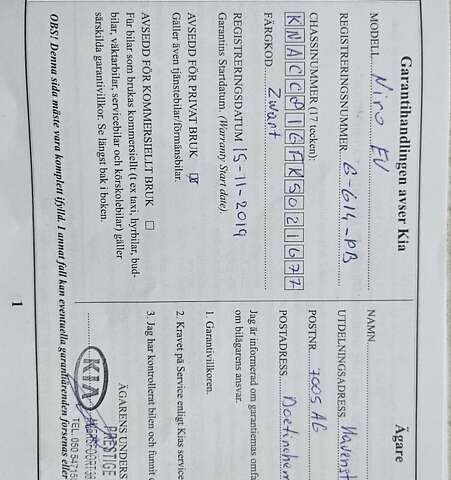 Garantihandlingen avser Kia
MODELL Niro EV
REGISTRERINGSNUMMER G-614-PB
CHASSINUMMER (17 tecken):
FÄRGKOD Zwart
REGISTRERINGSDATUM 15-11-2019
Garantins Startdatum. (Warranty Start date).
AVSEDD FÖR PRIVAT BRUK ☒
Gäller även tjänstebilar/förmånsbilar.
AVSEDD FÖR KOMMERSIELLT BRUK ☐
För bilar som brukas kommersiellt (t ex taxi, hyrbilar, bud-
bilar, väktarbilar, servicebilar och körskolebilar) gäller
särskilda garantivillkor. Se längst bak i boken.
OBS! Denna sida måste vara komplett ifylld. I annat fall kan eventuella garantiärenden försenas eller
1
Ägare
NAMN
UTDELNINGSADRESS
POSTNR 7005 AG
POSTADRESS Doetinchem
Jag är informerad om garantiernas omfa
om bilägarens ansvar.
1. Garantivillkoren.
2. Kravet på Service enligt Kias service
3. Jag har kontrollerat bilen och funnit
ÄGARENS UNDERS
KIA
PRESTIGE
TEL. 050 54715